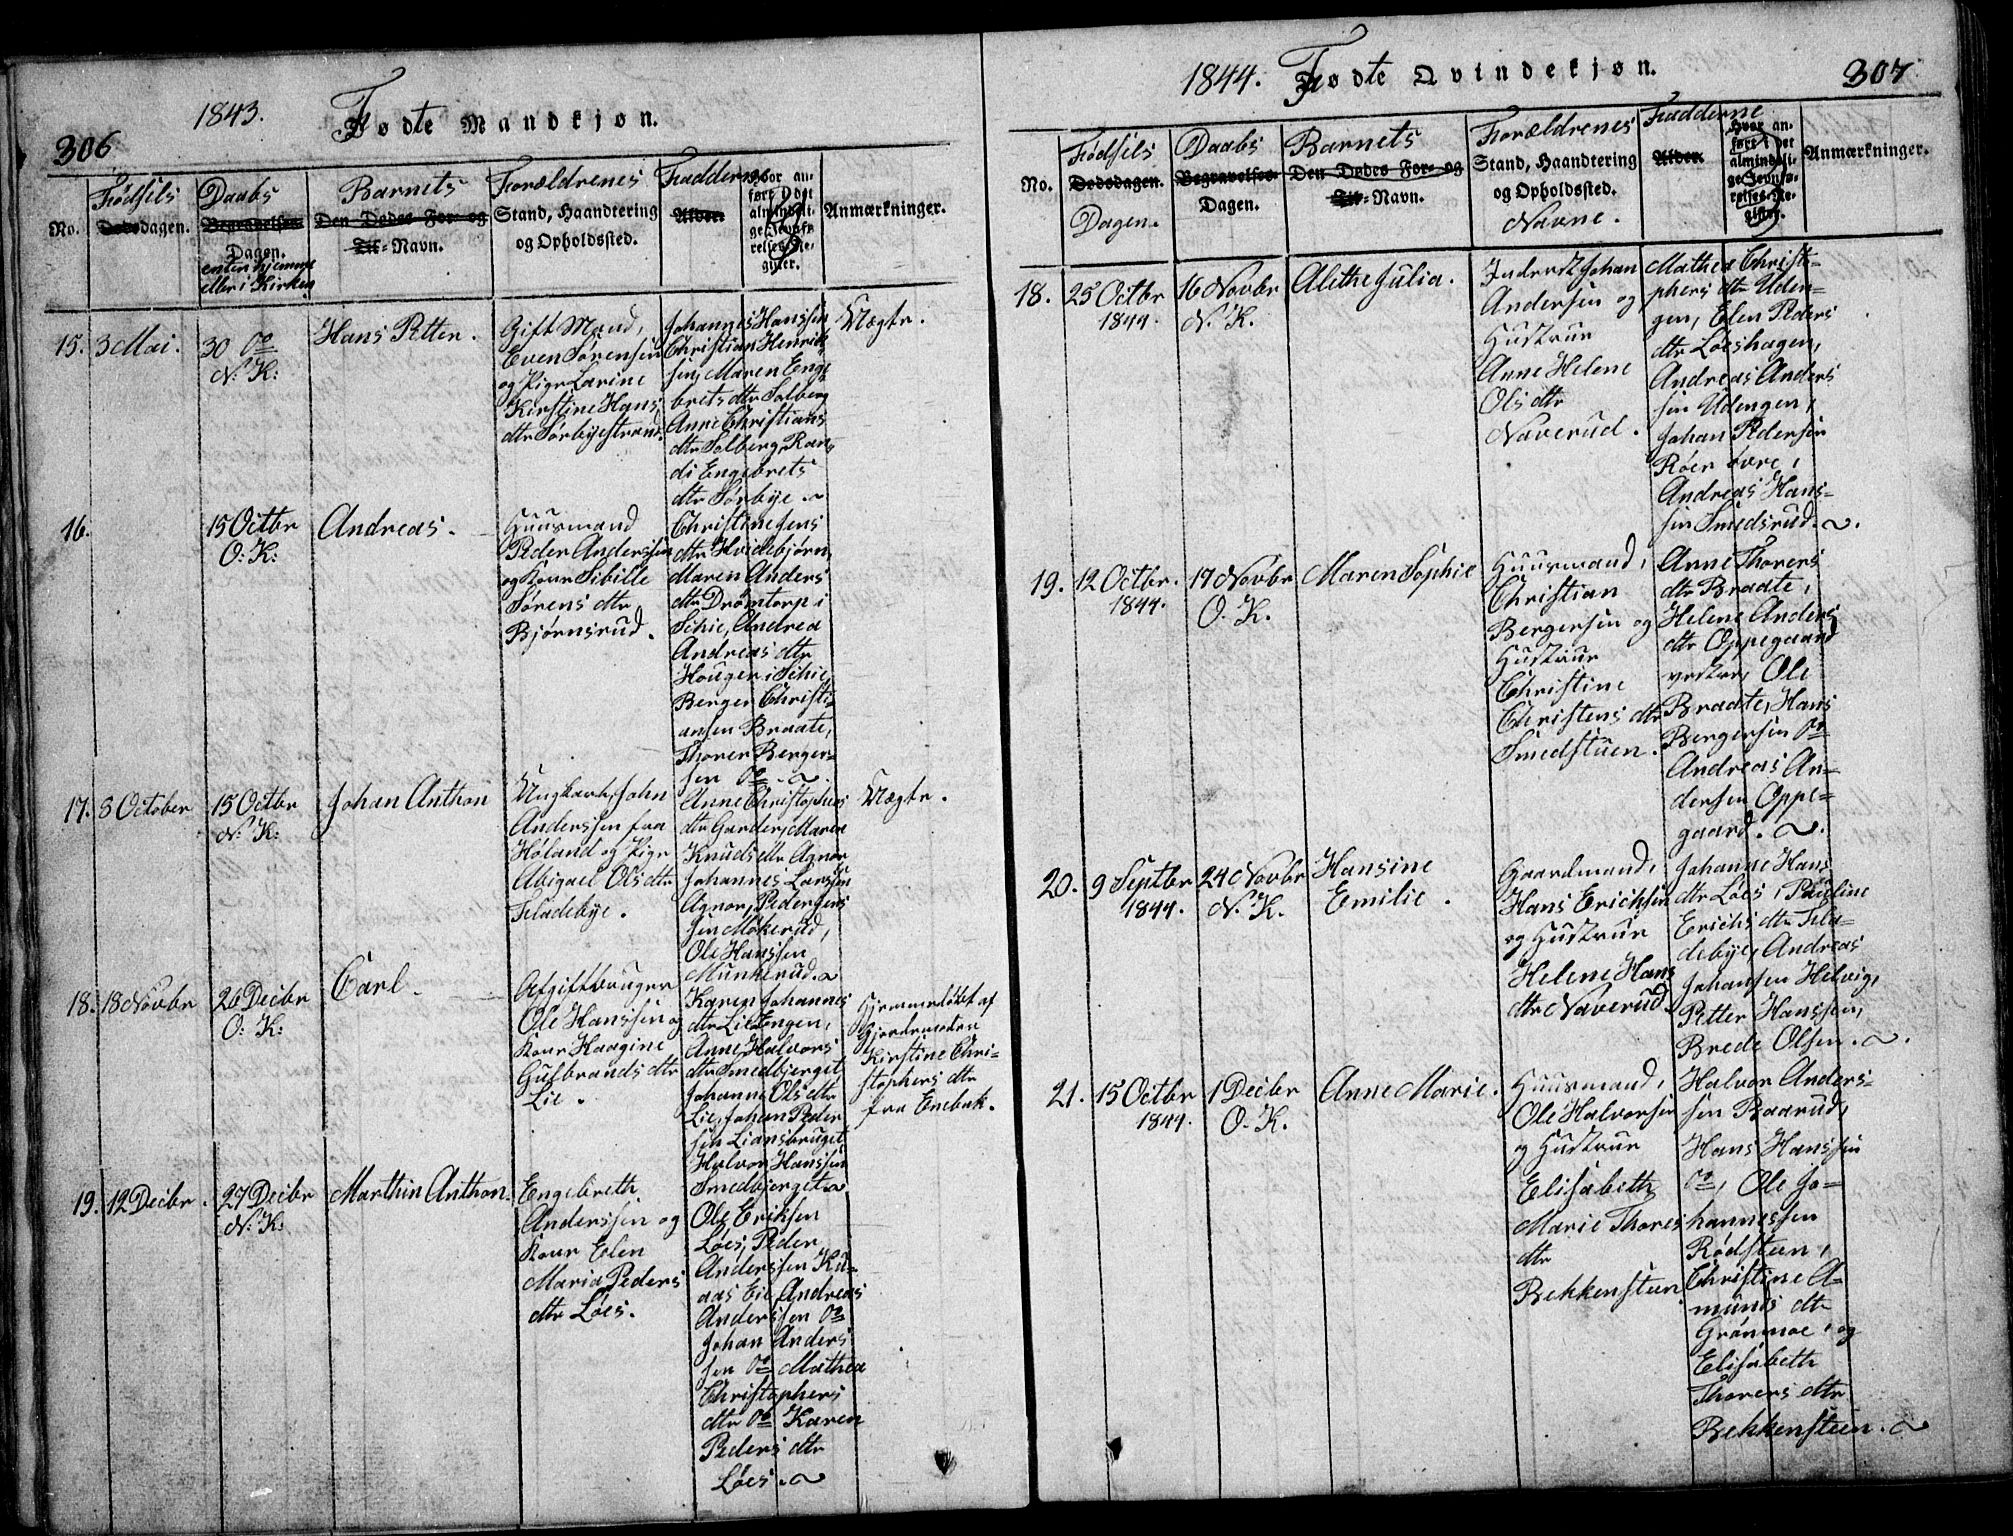 306
1843. Fødte Mandkjøn.
No.
Fødsels
Dødsdagen.
Daabs
Begravelses-
Dagen.
enten hjemme
eller i Kirken
Barnets
Den Dødes For- og
Til-Navn.
Forældrenes
Stand, Haandtering
og Opholdssted.
Fadderne
Alder.
Hvor an-
ført i Det
almindeli-
ge Jevnfø-
relses-Re-
gister.
Anmærkninger.
15. 3 Mai.
30 do
N: K:
Hans Petter.
Gift Mand,
Even Sørensen
og Pige Larine
Kirstine Hans
dtr Sørbyestrand.
Johannes Hanssen
Christian Henrik-
sen, Maren Enge
brets dtr Solberg
Anne Christians
dtr Solberg, Ran-
di Engebrets
dtr Sørbye.
Uægte.
16.
15 Octbr
O: K:
Andreas.
Huusmand
Peder Anderssen
og Kone Sibille
Sørens dtr
Bjørnsrud.
Christine Jens
dtr Hvidebjørn,
Maren Anders
dtr Drømtorp i
Schie, Andrea
Andreas dtr
Houger i Schie,
Berger Christi-
ansen Braate,
Thorer Berger-
sen do.
17. 8 October
15 Octbr
N: K:
Johan Anthon
Ungkarl, John
Anderssen fra
Høland og Pige
Abigael Ols dtr
Fladebye.
Anne Christophers
dtr Garder, Maren
Knuds dtr Agnor
Johannes Larssen
Agnor, Peder Jens
sen Møkerud,
Ole Hanssen
Munkerud.
Uægte.
18. 18 Novbr
26 Decbr
O: K:
Carl.
Afgiftbruger
Ole Hanssen og
Kone Kaagine
Gulbrands dtr
Lie.
Karen Johannes
dtr Lie Engen,
Anne Halvors
dtr Smedbjerget
Johanne Ols dtr
Lie, Johan Peder
sen Liansbruget,
Halvor Hanssen
Smedbjerget
Hjemmedøbt af
Gjordemoder
Kirstine Chri-
stophers dtr
fra Enebak.
19. 12 Decbr.
27 Decbr
N: K:
Marthin Anthon.
Engebreth
Anderssen og
Kone Elen
Maria Peders
dtr Løes.
Ole Eriksen
Løes, Peder
Anderssen Ka-
aas Eie, Andreas
Anderssen do
Johan Anders
sen do Mathea
Christophers
dtr do Karen
Peders dtr
Løes.
1844. Fødte Qvindekjøn.
307
No.
Fødsels
Dødsdagen.
Dagen.
Daabs
Begravelses-
Dagen.
Barnets
Den Dødes For- og
Til-Navn.
Forældrenes
Stand, Haandtering
og Opholdssted.
Navne.
Fadderne
Alder.
Hvor an-
ført i Det
almindeli-
ge Jevnfø-
relses-Re-
gister.
Anmærkninger.
18. 25 Octbr
1844.
16 Novbr
N. K.
Alethe Julia.
Inderst Johan
Andersen og
Hustrue
Anne Helene
Ols dtr
Naverud.
Mathea Christo-
phers dtr Uden-
gen, Elen Peders
dtr Løeshagen,
Andreas Anders
sen Udengen,
Johan Pedersen
Røer øvre,
Andreas Hans-
sen Smedsrud.
19. 12 Octbr.
1844.
17 Novbr
O. K.
Maren Sophie
Huusmand,
Christian
Bergersen og
Hustrue
Christine
Christens dtr
Smedstuen.
Anne Thorers
dtr Braate,
Helene Anders
dtr Oppegaard
vestre, Ole
Braate, Hans
Bergersen do
Andreas An-
dersen Oppe-
gaard.
20. 9 Septbr
1844.
24 Novbr
N. K.
Hansine
Emilie.
Gaardmand,
Hans Erichsen
og Hustrue
Helene Hans
dtr Naverud
Johanne Hans
dtr Løes, Pauline
Erichs dtr Fla-
debye, Andreas
Johansen Helvig,
Petter Hanssen,
Brede Olsen.
21. 15 Octbr
1844.
1 Decbr
O. K.
Anne Marie.
Huusmand,
Ole Halvorsen
og Hustrue
Elisabeth
Marie Thores
dtr
Bekkensteen
Halvor Anders-
sen Baarud,
Hans Hanssen
do, Ole Jo-
hannessen
Rødsteen,
Christine A-
munds dtr
Grønmoe, og
Elisabeth
Thorers dtr
Bekkensteen.